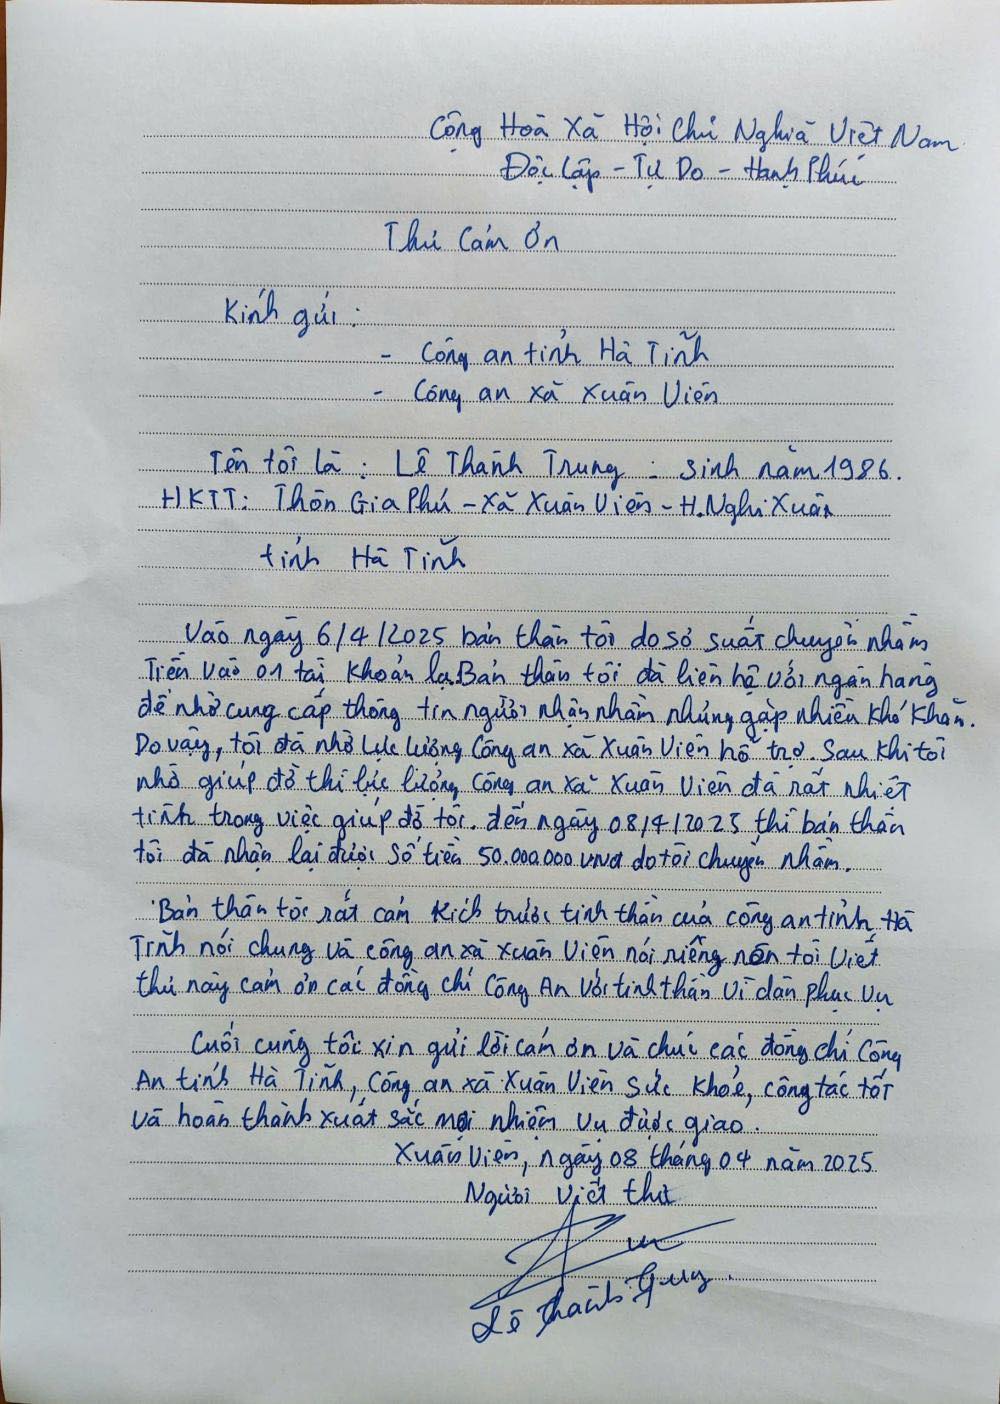 Cộng Hoà Xã Hội Chủ Nghĩa Việt Nam
Độc Lập - Tự Do - Hạnh Phúc
Thư Cảm Ơn
Kính gửi :
- Công an tỉnh Hà Tĩnh
- Công an xã Xuân Viên
Tên tôi là : Lê Thành Trung : sinh năm 1986.
HKTT: Thôn Gia Phú - Xã Xuân Viên - H. Nghi Xuân
tỉnh Hà Tĩnh
Vào ngày 6/4/2025 bản thân tôi do sơ suất chuyển nhầm
Tiền vào 01 tài khoản lạ. Bản thân tôi đã liên hệ với ngân hàng
để nhờ cung cấp thông tin người nhận nhầm nhưng gặp nhiều khó khăn.
Do vậy, tôi đã nhờ lực lượng Công an xã Xuân Viên hỗ trợ. Sau khi tôi
nhờ giúp đỡ thì lực lượng Công an xã Xuân Viên đã rất nhiệt
tình trong việc giúp đỡ tôi. đến ngày 08/4/2025 thì bản thân
tôi đã nhận lại được số tiền 50.000.000 vnđ do tôi chuyển nhầm.
Bản thân tôi rất cảm kích trước tinh thần của công an tỉnh Hà
Tĩnh nói chung và công an xã Xuân Viên nói riêng nên tôi viết
thư này cảm ơn các đồng chí Công An với tinh thần vì dân phục vụ
Cuối cùng tôi xin gửi lời cảm ơn và chúc các đồng chí Công
An tỉnh Hà Tĩnh, Công an xã Xuân Viên sức khoẻ, công tác tốt
và hoàn thành xuất sắc mọi nhiệm vụ được giao.
Xuân Viên, ngày 08 tháng 04 năm 2025
Người viết thư
Lê Thành Trung.